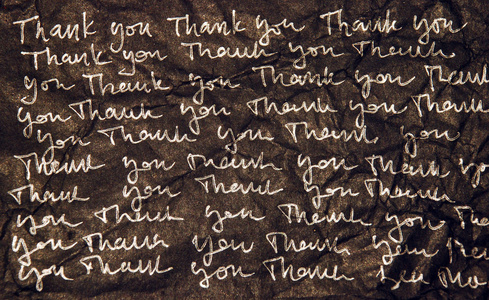 Thank you Thank you Thank you
Thank you Thank you Thank
you Thank you Thank you Thank
you Thank you Thank you Thank
you Thank you Thank you
Thank you Thank you Thank yo
Thank you Thank you Thank
you Thank you Thank you
you Thank you Thank you
you Thank you Thank